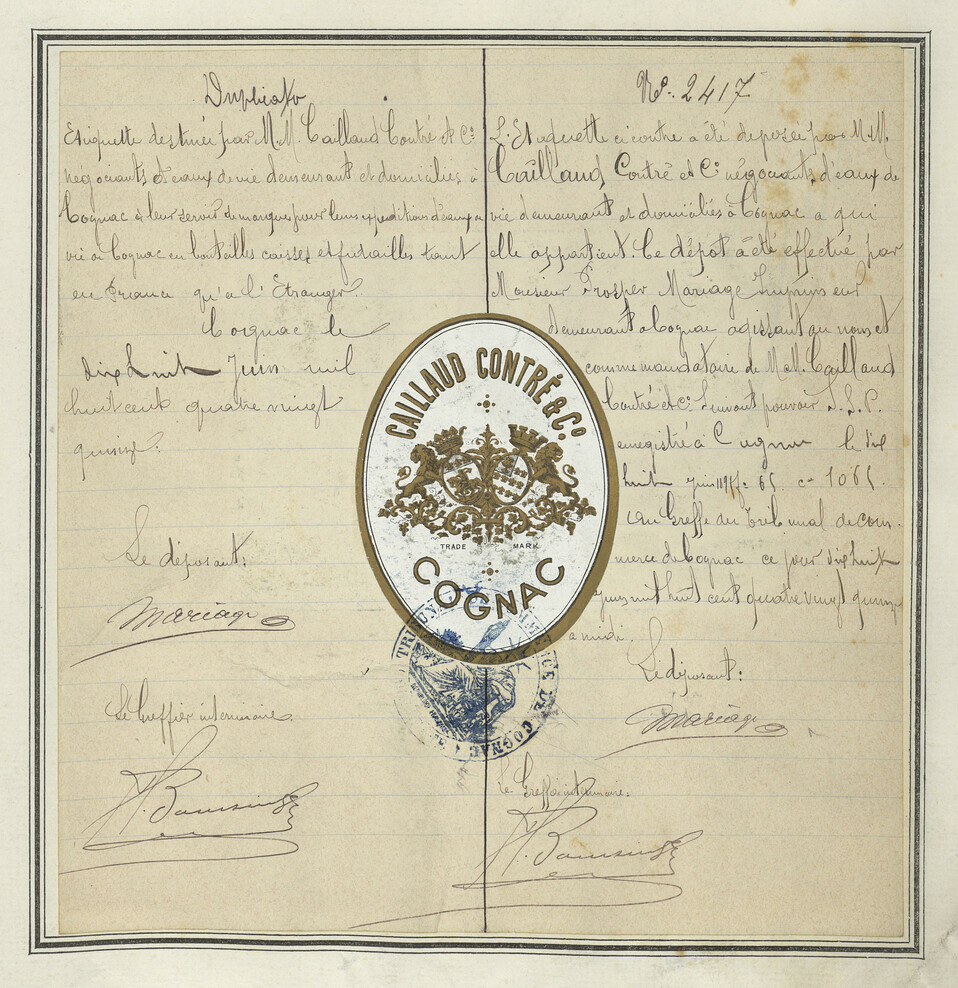 Duplicata
Etiquette destinée par M.M. Caillaud Contré et Cie
négociants d'eaux de vie demeurant et domiciliés à
Cognac à leur servir de marques pour leurs expéditions d'eaux de
vie à Cognac en bouteilles caisses et futailles tant
en France qu'à l'Etranger.
Cognac le
dix huit Juin mil
huit cent quatre vingt
quinze.
Le déposant:
Mariage
Le Greffier interimaire
No. 2417
L'Etiquette ci contre a été déposée par M.M.
Caillaud Contré et Cie négociants d'eaux de
vie demeurant et domiciliés à Cognac à qui
elle appartient. Ce dépôt a été effectué par
Monsieur Prosper Mariage Imprimeur
demeurant à Cognac agissant au nom et
comme mandataire de M.M. Caillaud
Contré et Cie suivant pouvoir S.S.P.
enregistré à Cognac le dix
huit juin fo 65 c 1065.
Au Greffe du Tribunal de Com-
merce de Cognac ce jour dix huit
juin mil huit cent quatre vingt quinze
à midi.
Le déposant:
Mariage
Le Greffier interimaire.
CAILLAUD CONTRÉ & Co.
TRADE MARK
COGNAC
TRIBUNAL DE COMMERCE DE COGNAC